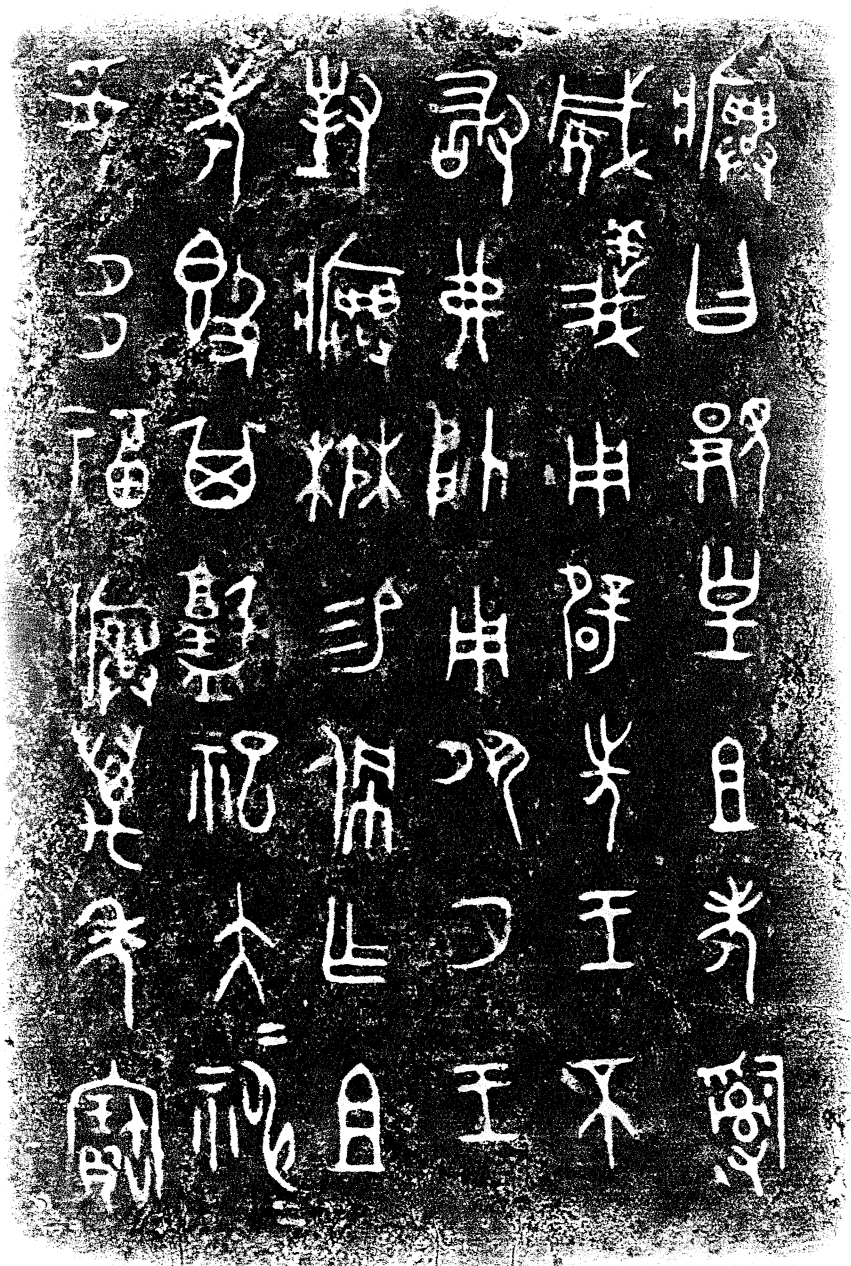 𤼈曰皇且考𤔲
威義用辟先王不
敢弗帥用夙夕王
對𤼈楙易佩乍且
考𣪘其祀大=神=
妥多福𤼈萬年寶